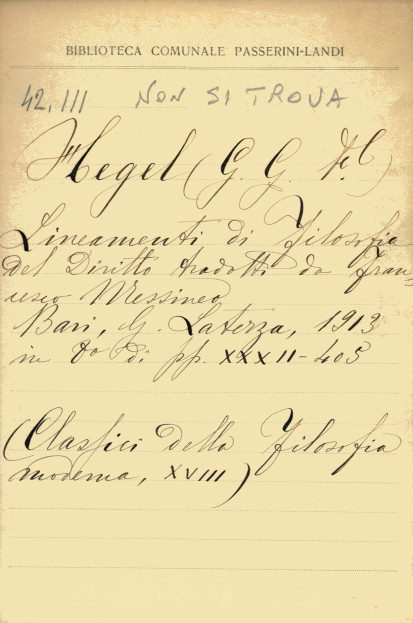 BIBLIOTECA COMUNALE PASSERINI-LANDI
42.III NON SI TROVA
Hegel (G. G. F.)
Lineamenti di Filosofia
del Diritto tradotti da Fran-
cesco Messineo
Bari, G. Laterza, 1913
in 8° di pp. XXXII-405
(Classici della Filosofia
moderna, XVIII)